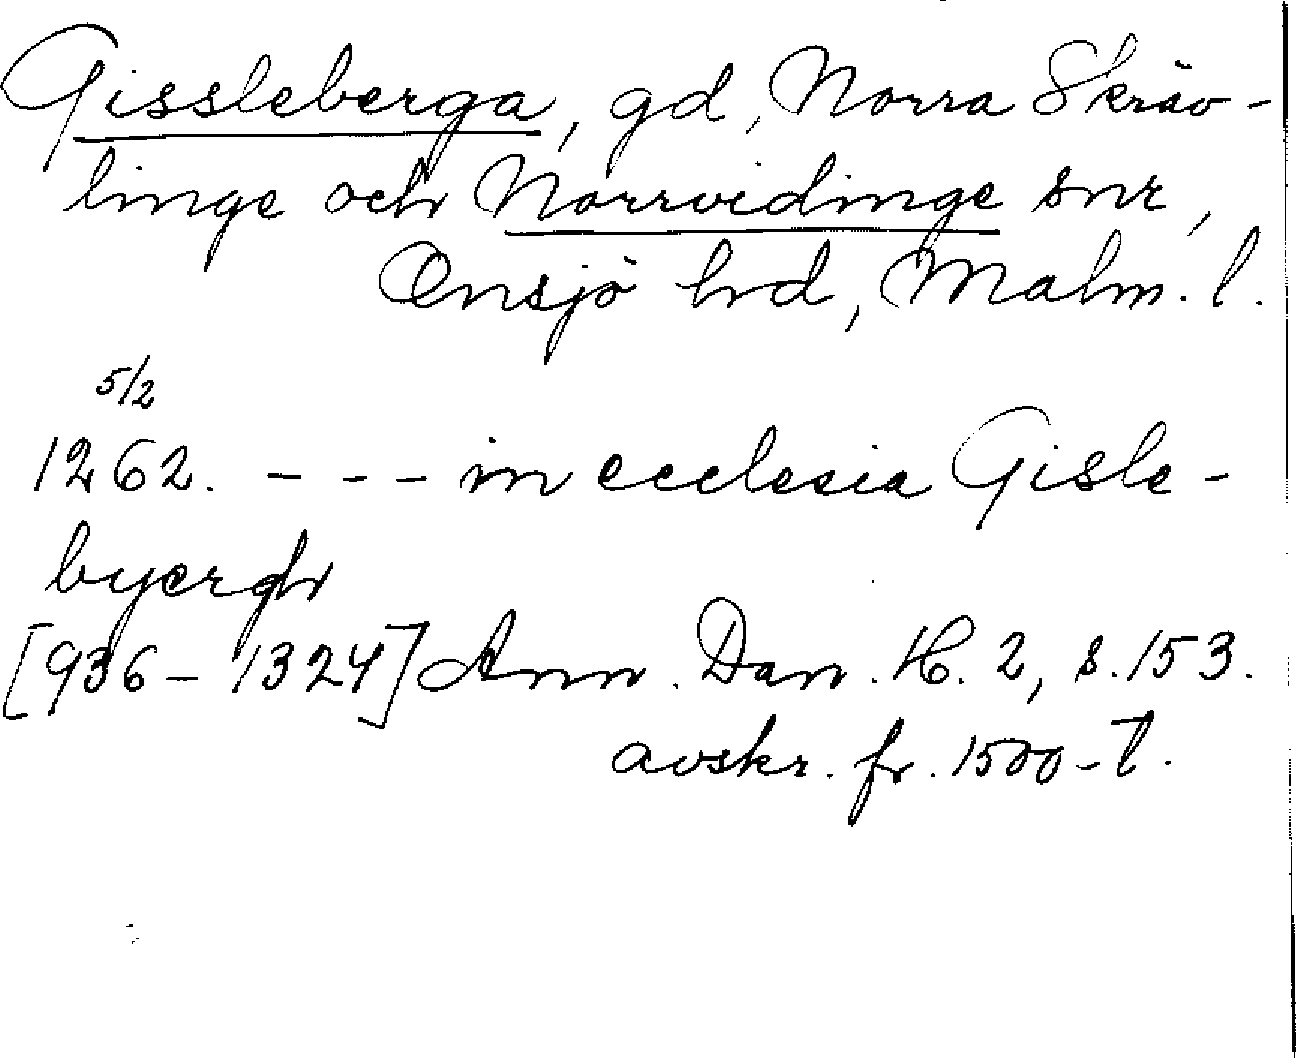 Gissleberga, gd, Norra Skräv-
linge och Norrvidinge snr,
Onsjö hrd, Malm. l.
5/2
1262. - - - in ecclesia Gisle-
byergh
[936-1324] Ann. Dan. H. 2, s. 153.
avskr. fr. 1500-t.